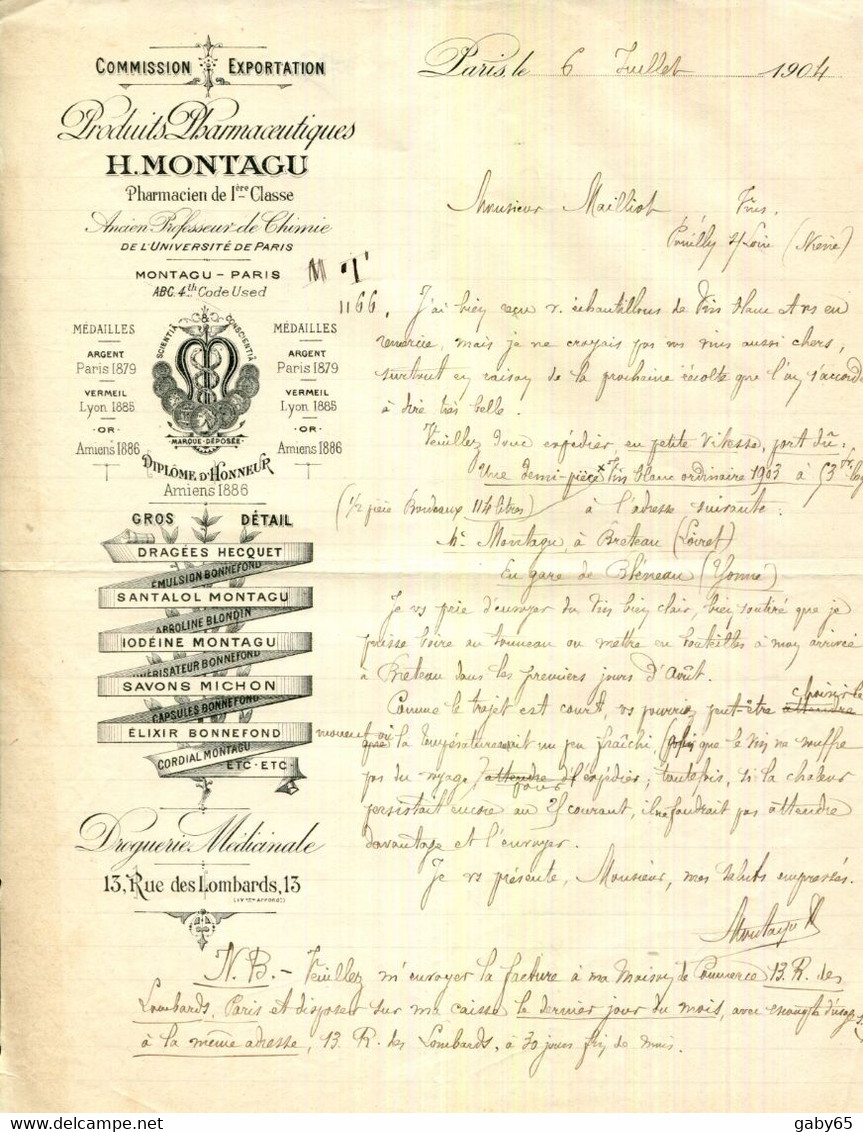 COMMISSION EXPORTATION
Produits Pharmaceutiques
H. MONTAGU
Pharmacien de 1ère Classe
Ancien Professeur de Chimie
DE L'UNIVERSITÉ DE PARIS
MONTAGU - PARIS
ABC. 4th Code Used
MÉDAILLES
ARGENT
Paris 1879
VERMEIL
Lyon 1885
·OR·
Amiens 1886
SCIENTIÂ & CONSCIENTIÂ
MARQUE DÉPOSÉE
MÉDAILLES
ARGENT
Paris 1879
VERMEIL
Lyon 1885
·OR·
Amiens 1886
DIPLÔME D'HONNEUR
Amiens 1886
GROS DÉTAIL
DRAGÉES HECQUET
ÉMULSION BONNEFOND
SANTALOL MONTAGU
ABROLINE BLONDIN
IODÉINE MONTAGU
BONNEFOND
SAVONS MICHON
CAPSULES BONNEFOND
ÉLIXIR BONNEFOND
CORDIAL MONTAGU
ETC·ETC·
Droguerie Médicinale
13, Rue des Lombards, 13
(IVème ARRONDt)
Paris, le 6 Juillet 1904
Monsieur Mailliot Vins.
Pouilly s/Loire (Nièvre)
M T
1166. J'ai bien reçu v. échantillons de Vin blanc & vs en
remercie, mais je ne croyais pas vos vins aussi chers,
surtout en raison de la prochaine récolte que l'on s'accorde
à dire très belle.
Veuillez donc expédier, en petite vitesse, port dû:
Une demi-pièce x Vin blanc ordinaire 1903 à 53 fr
(1/2 pièce Bordeaux 114 litres) à l'adresse suivante:
Mr Montagu, à Breteau (Loiret)
En gare de Bléneau (Yonne)
Je vs prie d'envoyer du Vin bien clair, bien soutiré que je
puisse boire au tonneau ou mettre en bouteilles à mon arrivée
à Breteau dans les premiers jours d'Août.
Comme le trajet est court, vs pourriez peut-être attendre choisir le
moment où que la température soit un peu fraîche, (afin que le Vin ne souffre
pas du voyage) attendre pour l'expédier; toutefois, si la chaleur
persistait encore au 25 courant, il ne faudrait pas attendre
davantage et l'envoyer.
Je vs présente, Monsieur, mes saluts empressés.
Montagu H
N.B. - Veuillez m'envoyer la facture à ma Maison de Commerce 13. R. des
Lombards, Paris et disposer sur ma caisse le dernier jour du mois, avec escompte d'usage
à la même adresse, 13. R. des Lombards, à 30 jours fin de mois.
delcampe.net
gaby65